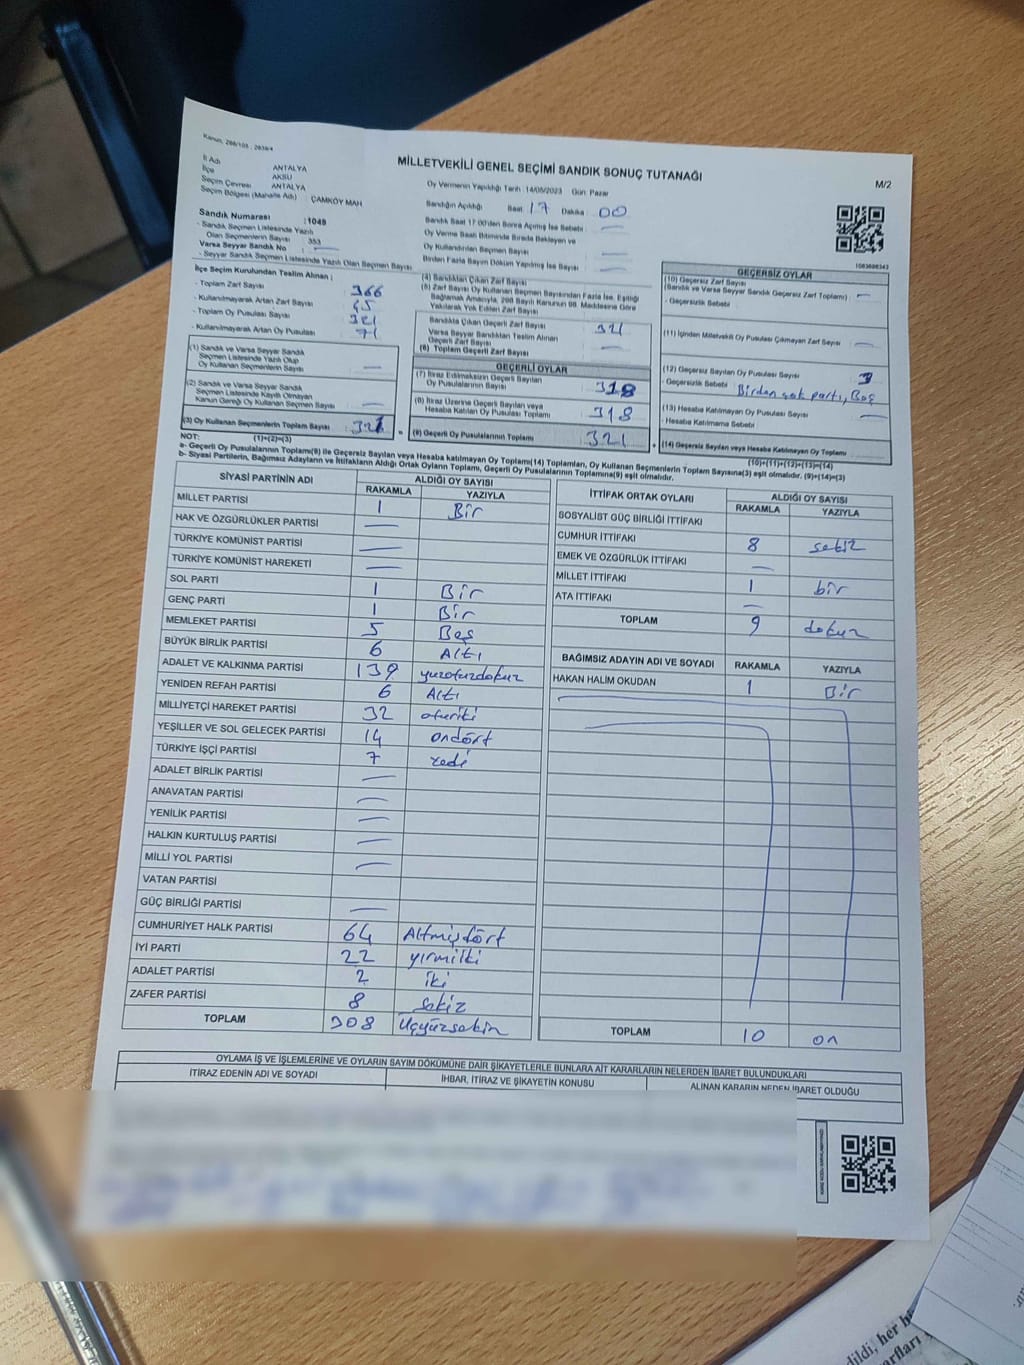 Kanun, 298/105 , 2839/4
MİLLETVEKİLİ GENEL SEÇİMİ SANDIK SONUÇ TUTANAĞI
M/2
İl Adı ANTALYA
İlçe AKSU
Seçim Çevresi ANTALYA
Seçim Bölgesi (Mahalle Adı) ÇAMKÖY MAH
Oy Vermenin Yapıldığı Tarih :14/05/2023 Gün: Pazar
Sandığın Açıldığı Saat 17 Dakika 00
Sandık Saat 17:00'den Sonra Açılmış İse Sebebi :
Oy Verme Saati Bitiminde Sırada Bekleyen ve
Oy Kullandırılan Seçmen Sayısı
Birden Fazla Sayım Döküm Yapılmış İse Sayısı :
Sandık Numarası :1049
- Sandık Seçmen Listesinde Yazılı
Olan Seçmenlerin Sayısı : 353
Varsa Seyyar Sandık No
- Seyyar Sandık Seçmen Listesinde Yazılı Olan Seçmen Sayısı
İlçe Seçim Kurulundan Teslim Alınan ;
- Toplam Zarf Sayısı : 366
- Kullanılmayarak Artan Zarf Sayısı : 45
- Toplam Oy Pusulası Sayısı : 321
- Kullanılmayarak Artan Oy Pusulası : 71
(1) Sandık ve Varsa Seyyar Sandık
Seçmen Listesinde Yazılı Olup
Oy Kullanan Seçmenlerin Sayısı
(2) Sandık ve Varsa Seyyar Sandık
Seçmen Listesinde Kayıtlı Olmayan
Kanun Gereği Oy Kullanan Seçmen Sayısı
(3) Oy Kullanan Seçmenlerin Toplam Sayısı 321
(4) Sandıktan Çıkan Zarf Sayısı
(5) Zarf Sayısı Oy Kullanan Seçmen Sayısından Fazla İse, Eşitliği
Bağlamak Amacıyla, 298 Sayılı Kanunun 98. Maddesine Göre
Yakılarak Yok Edilen Zarf Sayısı
Sandıkta Çıkan Geçerli Zarf Sayısı 321
Varsa Seyyar Sandıktan Teslim Alınan
Geçerli Zarf Sayısı
(6) Toplam Geçerli Zarf Sayısı
GEÇERLİ OYLAR
(7) İtiraz Edilmeksizin Geçerli Sayılan
Oy Pusulalarının Sayısı 318
(8) İtiraz Üzerine Geçerli Sayılan veya
Hesaba Katılan Oy Pusulası Toplamı 318
(9) Geçerli Oy Pusulalarının Toplamı 321
1083686343
GEÇERSİZ OYLAR
(10) Geçersiz Zarf Sayısı
(Sandık ve Varsa Seyyar Sandık Geçersiz Zarf Toplamı) :
- Geçersizlik Sebebi
(11) İçinden Milletvekili Oy Pusulası Çıkmayan Zarf Sayısı
(12) Geçersiz Sayılan Oy Pusulası Sayısı 3
- Geçersizlik Sebebi : Birden çok parti, Boş
(13) Hesaba Katılmayan Oy Pusulası Sayısı
- Hesaba Katılmama Sebebi :
(14) Geçersiz Sayılan veya Hesaba Katılmayan Oy Toplamı
NOT: (1)+(2)=(3) (10)+(11)+(12)+(13)=(14)
a- Geçerli Oy Pusulalarının Toplamı(9) ile Geçersiz Sayılan veya Hesaba katılmayan Oy Toplamı(14) Toplamları, Oy Kullanan Seçmenlerin Toplam Sayısına(3) eşit olmalıdır. (9)+(14)=(3)
b- Siyasi Partilerin, Bağımsız Adayların ve İttifakların Aldığı Ortak Oyların Toplamı, Geçerli Oy Pusulalarının Toplamına(9) eşit olmalıdır.
SİYASİ PARTİNİN ADI ALDIĞI OY SAYISI
RAKAMLA YAZIYLA
MİLLET PARTİSİ 1 Bir
HAK VE ÖZGÜRLÜKLER PARTİSİ
TÜRKİYE KOMÜNİST PARTİSİ
TÜRKİYE KOMÜNİST HAREKETİ
SOL PARTİ 1 Bir
GENÇ PARTİ 1 Bir
MEMLEKET PARTİSİ 5 Beş
BÜYÜK BİRLİK PARTİSİ 6 Altı
ADALET VE KALKINMA PARTİSİ 139 yüzotuzdokuz
YENİDEN REFAH PARTİSİ 6 Altı
MİLLİYETÇİ HAREKET PARTİSİ 32 otuziki
YEŞİLLER VE SOL GELECEK PARTİSİ 14 ondört
TÜRKİYE İŞÇİ PARTİSİ 7 Yedi
ADALET BİRLİK PARTİSİ
ANAVATAN PARTİSİ
YENİLİK PARTİSİ
HALKIN KURTULUŞ PARTİSİ
MİLLİ YOL PARTİSİ
VATAN PARTİSİ
GÜÇ BİRLİĞİ PARTİSİ
CUMHURİYET HALK PARTİSİ 64 Altmışdört
İYİ PARTİ 22 yirmiiki
ADALET PARTİSİ 2 iki
ZAFER PARTİSİ 8 sekiz
TOPLAM 308 Üçyüzsekiz
İTTİFAK ORTAK OYLARI ALDIĞI OY SAYISI
RAKAMLA YAZIYLA
SOSYALİST GÜÇ BİRLİĞİ İTTİFAKI
CUMHUR İTTİFAKI 8 sekiz
EMEK VE ÖZGÜRLÜK İTTİFAKI
MİLLET İTTİFAKI 1 bir
ATA İTTİFAKI
TOPLAM 9 dokuz
BAĞIMSIZ ADAYIN ADI VE SOYADI RAKAMLA YAZIYLA
HAKAN HALİM OKUDAN 1 Bir
TOPLAM 10 on
OYLAMA İŞ VE İŞLEMLERİNE VE OYLARIN SAYIM DÖKÜMÜNE DAİR ŞİKAYETLERLE BUNLARA AİT KARARLARIN NELERDEN İBARET BULUNDUKLARI
İTİRAZ EDENİN ADI VE SOYADI İHBAR, İTİRAZ VE ŞİKAYETİN KONUSU ALINAN KARARIN NEDEN İBARET OLDUĞU
dildi, her